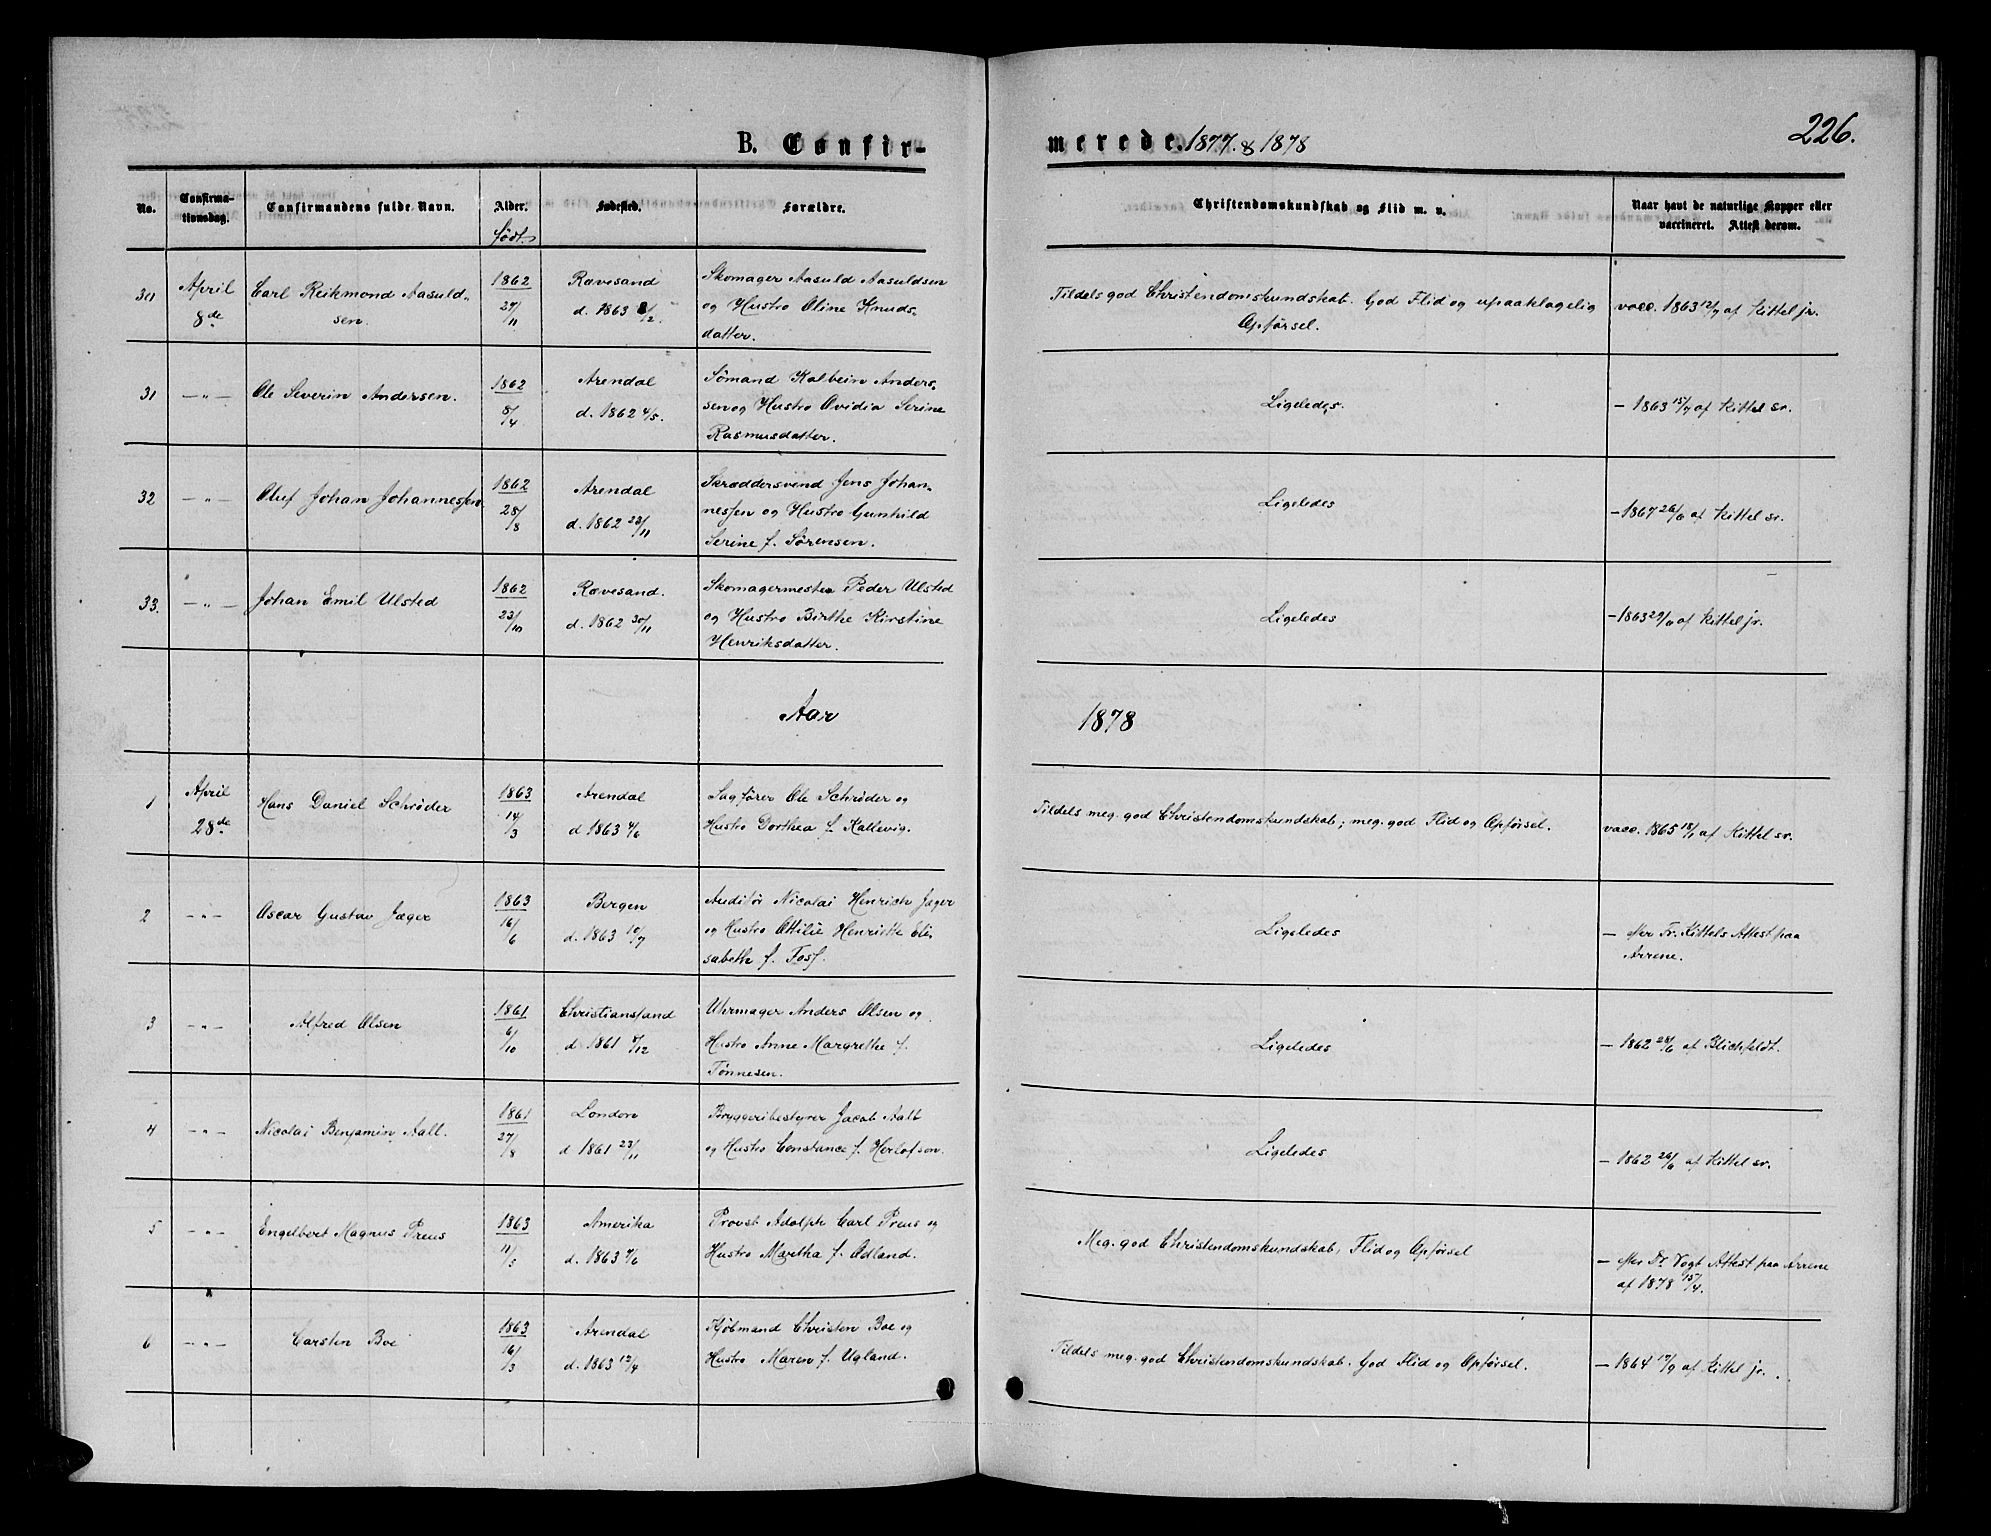 226.
B. Confirmerede. 1877. & 1878
No.
Confirmationsdag.
Confirmandens fulde Navn.
Alder.
født
Fødested.
Forældre.
Christendomskundskab og Flid m. v.
Naar havt de naturlige Kopper eller
vaccineret. Attest derom.
30 April 8de Carl Reikmond Aasuldsen. 1862 27/11 Rævesand d. 1863 8/2.
Skomager Aasuld Aasuldsen
og Hustro Oline Knuds-
datter.
Tildels god Christendomskundskab. God Flid og upaaklagelig
Opførsel.
vacc. 1863 12/7 af Kittel jr.
31 — " — Ole Severin Andersen. 1862 8/4 Arendal d. 1862 4/5.
Sømand Kolbein Anders-
sen og Hustro Ovidia Serine
Rasmusdatter.
Ligeledes.
— 1863 15/7 af Kittel sr.
32 — " — Oluf Johan Johannessen. 1862 28/8 Arendal d. 1862 23/11
Skræddersvend Jens Johan-
nessen og Hustro Gunhild
Serine f. Sørensen.
Ligeledes
— 1867 26/6 af Kittel sr.
33. — " — Johan Emil Ulsted 1862 23/10 Rævesand. d. 1862 30/11
Skomagermester Peder Ulsted
og Hustro Birthe Kirstine
Henriksdatter.
Ligeledes
— 1863 29/6 af Kittel jr.
Aar 1878
1 April 28de Hans Daniel Schrøder 1863 14/3 Arendal d 1863 4/6
Sagfører Ole Schrøder og
Hustro Dorthea f. Kallevig.
Tildels meg. god Christendomskundskab; meg. god Flid og Opførsel.
vacc. 1865 18/1 af Kittel sr.
2 — " — Oscar Gustav Jæger 1863 16/6 Bergen d. 1863 10/7
Auditør Nicolai Henrich Jæger
og Hustro Ottilie Henriette Eli-
sabeth f. Foss.
Ligeledes
— efter Fr. Kittels Attest paa
Arrene.
3 — " — Alfred Olsen 1861 6/10 Christianssand d 1861 8/12
Uhrmager Anders Olsen og
Hustro Anne Margrethe f.
Tønnesen.
Ligeledes
— 1862 28/6 af Blichfeldt.
4 — " — Nicolai Benjamin Aall. 1861 27/8 London d 1861 23/11
Bryggeribestyrer Jacob Aall
og Hustro Constance f. Herlofson.
Ligeledes
— 1862 26/6 af Kittel sr.
5 — " — Engelbert Magnus Preus 1863 11/3 Amerika d. 1863 7/6
Provst Adolph Carl Preus og
Hustro Martha f. Odland.
Meg. god Christendomskundskab, Flid og Opførsel
— efter Dr. Vogt Attest paa Arrene
af 1878 15/4.
6 — " — Carsten Boe 1863 16/3 Arendal d. 1863 12/4
Kjøbmand Christen Boe og
Hustro Maren f. Ugland.
Tildels meg. god Christendomskundskab. God Flid og Opførsel.
— 1864 19/9 af Kittel jr.